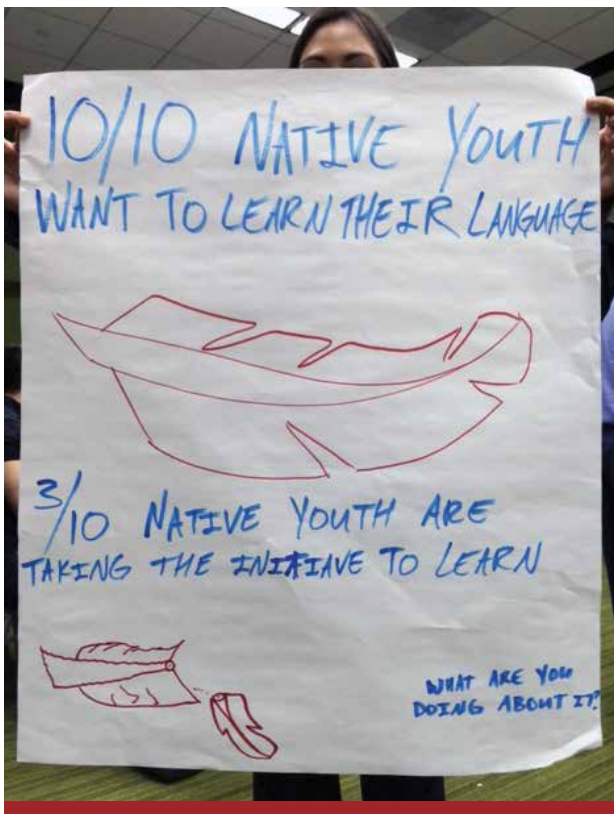 10/10 NATIVE YOUTH
WANT TO LEARN THEIR LANGUAGE
3/10 NATIVE YOUTH ARE
TAKING THE INITAIAVE TO LEARN
WHAT ARE YOU
DOING ABOUT IT?